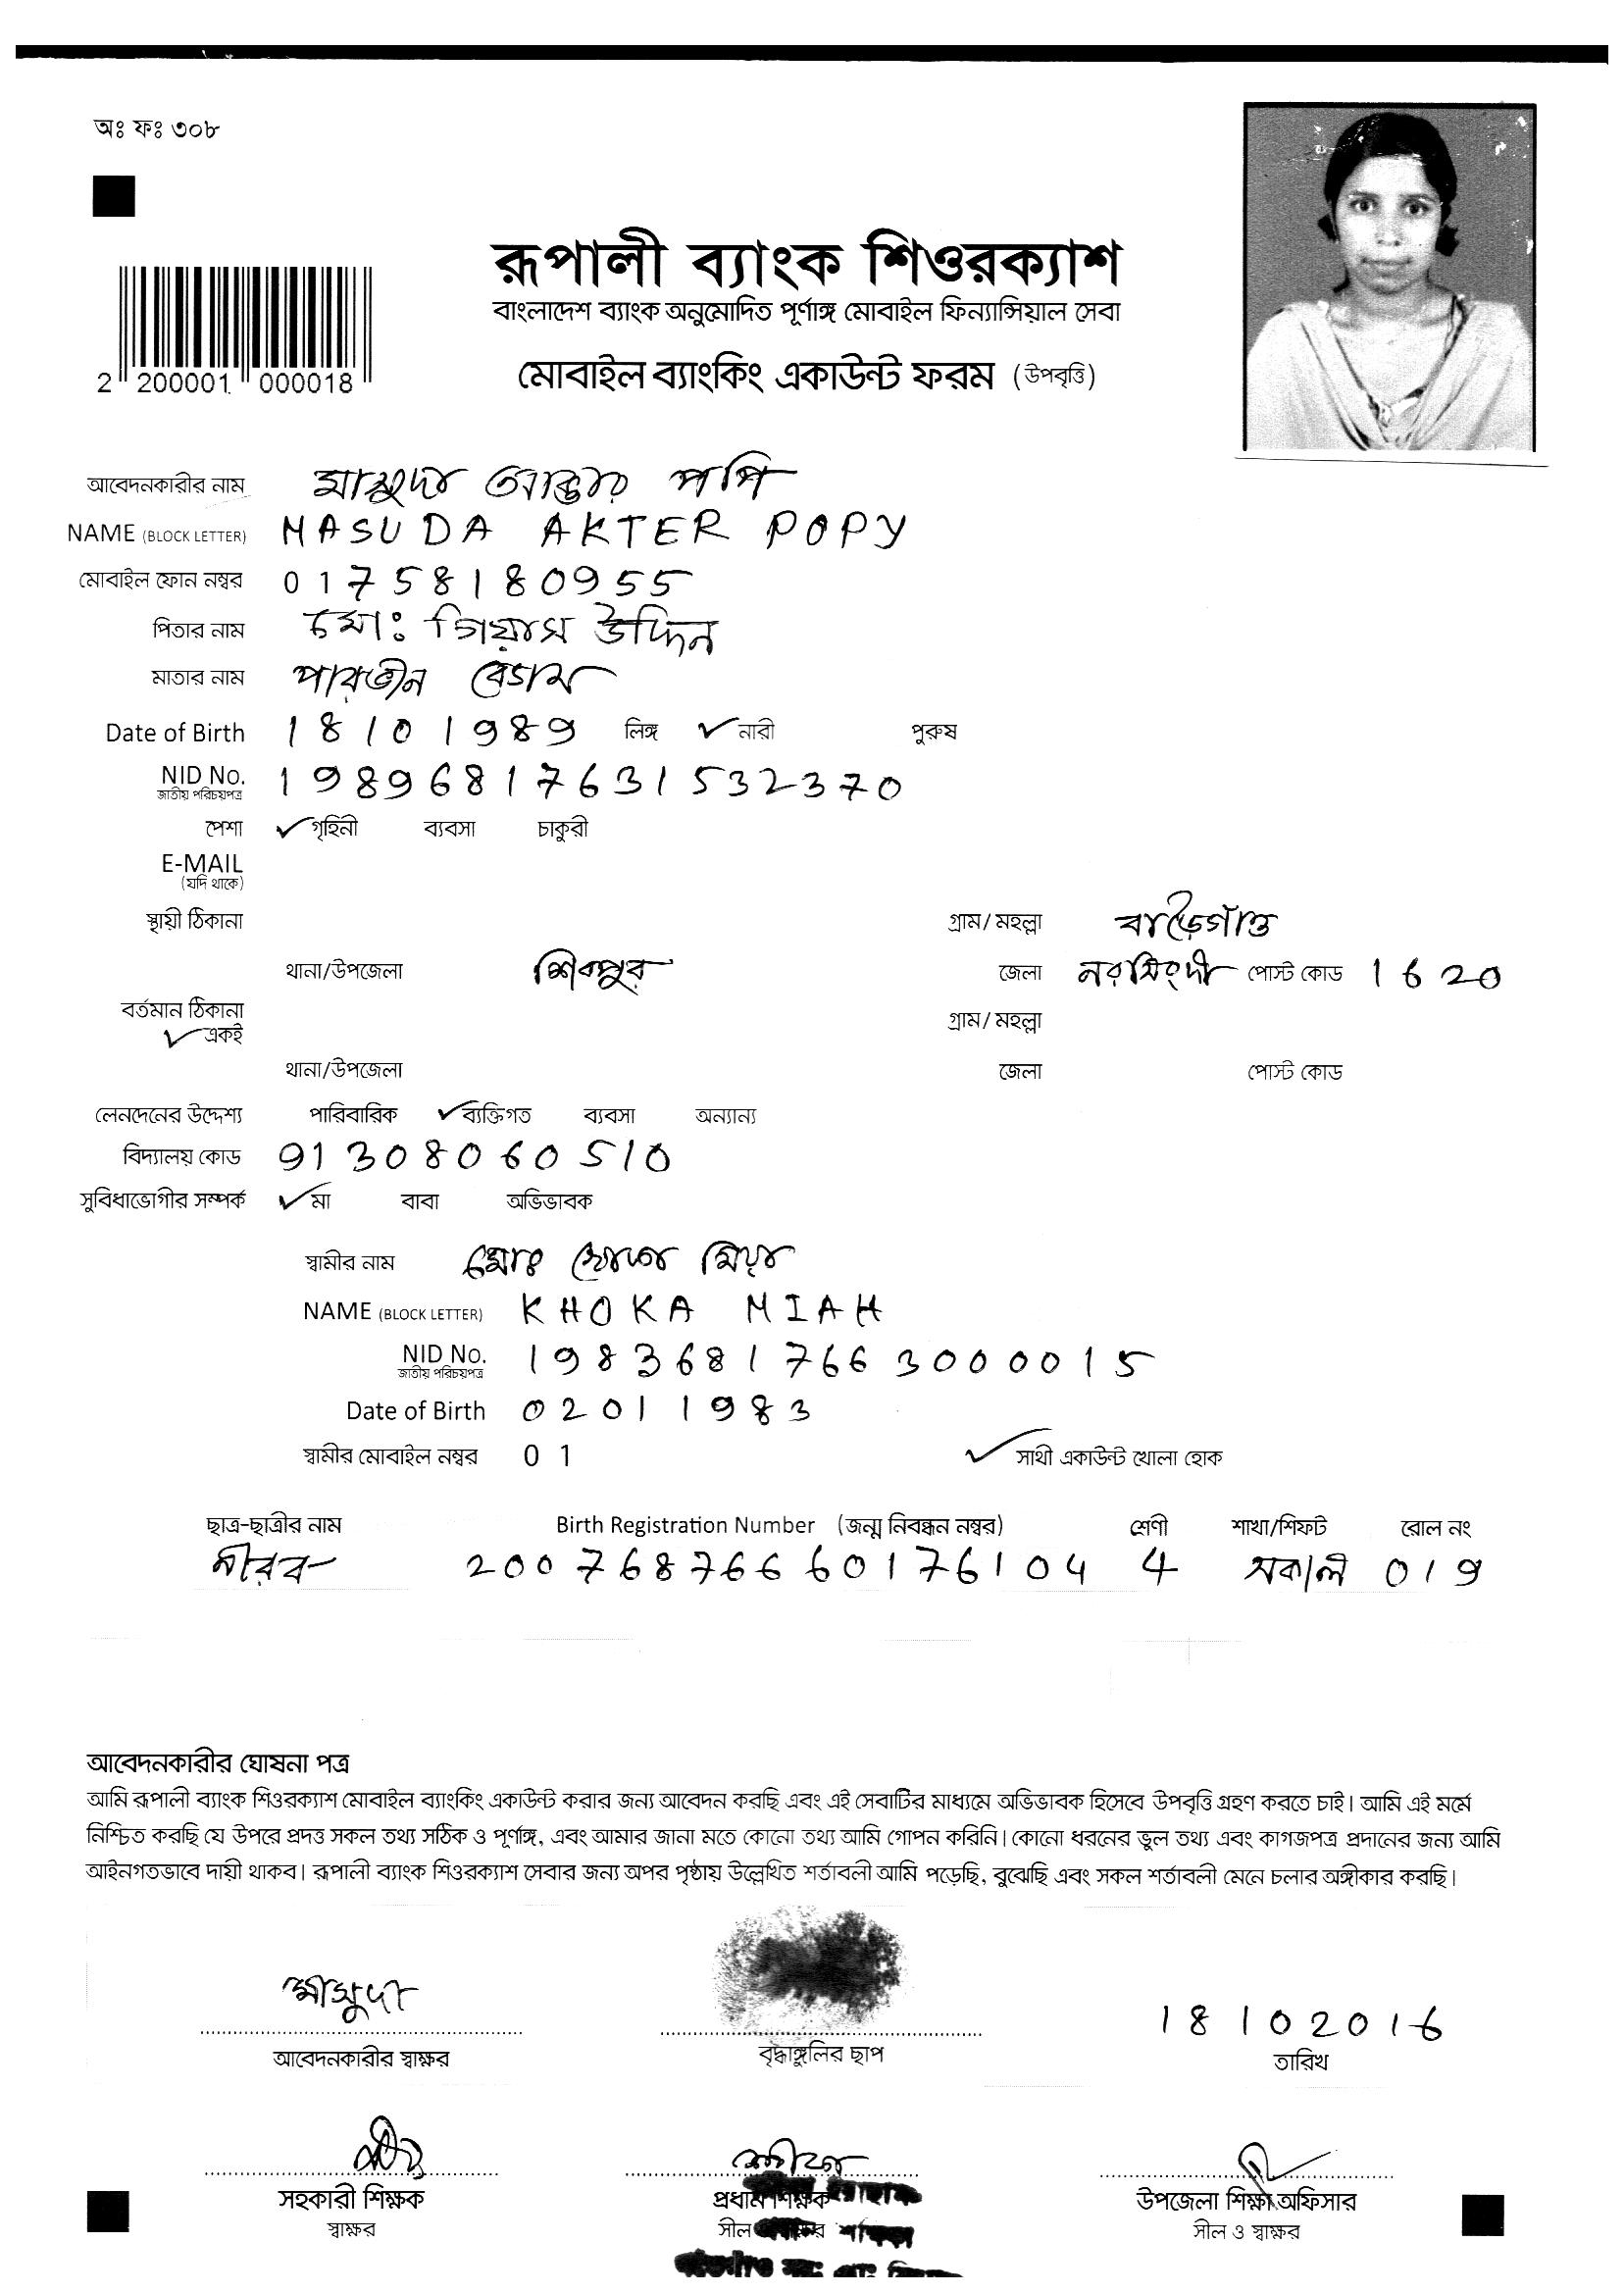 অঃ ফঃ ৩০৮
রূপালী ব্যাংক শিওরক্যাশ
বাংলাদেশ ব্যাংক অনুমোদিত পূর্ণাঙ্গ মোবাইল ফিন্যান্সিয়াল সেবা
মোবাইল ব্যাংকিং একাউন্ট ফরম (উপবৃত্তি)
2 200001 000018
আবেদনকারীর নাম মাসুদা আক্তার পপি
NAME (BLOCK LETTER) MASUDA AKTER POPY
মোবাইল ফোন নম্বর 01758180955
পিতার নাম মোঃ গিয়াস উদ্দিন
মাতার নাম পারভীন বেগম
Date of Birth 18101989 লিঙ্গ ✓ নারী পুরুষ
NID No. 19896817631532370
জাতীয় পরিচয়পত্র
পেশা ✓ গৃহিনী ব্যবসা চাকুরী
E-MAIL
(যদি থাকে)
স্থায়ী ঠিকানা গ্রাম/ মহল্লা বাড়ৈগাঁও
থানা/উপজেলা শিবপুর জেলা নরসিংদী পোস্ট কোড 1620
বর্তমান ঠিকানা গ্রাম/ মহল্লা
✓ একই
থানা/উপজেলা জেলা পোস্ট কোড
লেনদেনের উদ্দেশ্য পারিবারিক ✓ ব্যক্তিগত ব্যবসা অন্যান্য
বিদ্যালয় কোড 91308060510
সুবিধাভোগীর সম্পর্ক ✓ মা বাবা অভিভাবক
স্বামীর নাম মোঃ খোকা মিয়া
NAME (BLOCK LETTER) KHOKA MIAH
NID No. 19836817663000015
জাতীয় পরিচয়পত্র
Date of Birth 02011983
স্বামীর মোবাইল নম্বর 01 ✓ সাথী একাউন্ট খোলা হোক
ছাত্র-ছাত্রীর নাম Birth Registration Number (জন্ম নিবন্ধন নম্বর) শ্রেণী শাখা/শিফট রোল নং
নীরব 20076876660176104 4 সকাল 019
আবেদনকারীর ঘোষনা পত্র
আমি রূপালী ব্যাংক শিওরক্যাশ মোবাইল ব্যাংকিং একাউন্ট করার জন্য আবেদন করছি এবং এই সেবাটির মাধ্যমে অভিভাবক হিসেবে উপবৃত্তি গ্রহণ করতে চাই। আমি এই মর্মে
নিশ্চিত করছি যে উপরে প্রদত্ত সকল তথ্য সঠিক ও পূর্ণাঙ্গ, এবং আমার জানা মতে কোনো তথ্য আমি গোপন করিনি। কোনো ধরনের ভুল তথ্য এবং কাগজপত্র প্রদানের জন্য আমি
আইনগতভাবে দায়ী থাকব। রূপালী ব্যাংক শিওরক্যাশ সেবার জন্য অপর পৃষ্ঠায় উল্লেখিত শর্তাবলী আমি পড়েছি, বুঝেছি এবং সকল শর্তাবলী মেনে চলার অঙ্গীকার করছি।
মাসুদা 18102016
আবেদনকারীর স্বাক্ষর বৃদ্ধাঙ্গুলির ছাপ তারিখ
সহকারী শিক্ষক প্রধান শিক্ষক উপজেলা শিক্ষা অফিসার
স্বাক্ষর সীল ও স্বাক্ষর সীল ও স্বাক্ষর